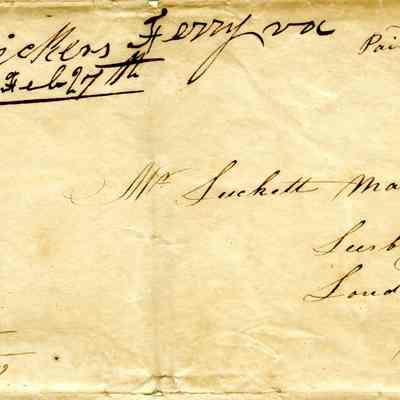 ickers Ferry va
Feb 27th
Pai
Mr Luckett Ma
Lesb
Loud